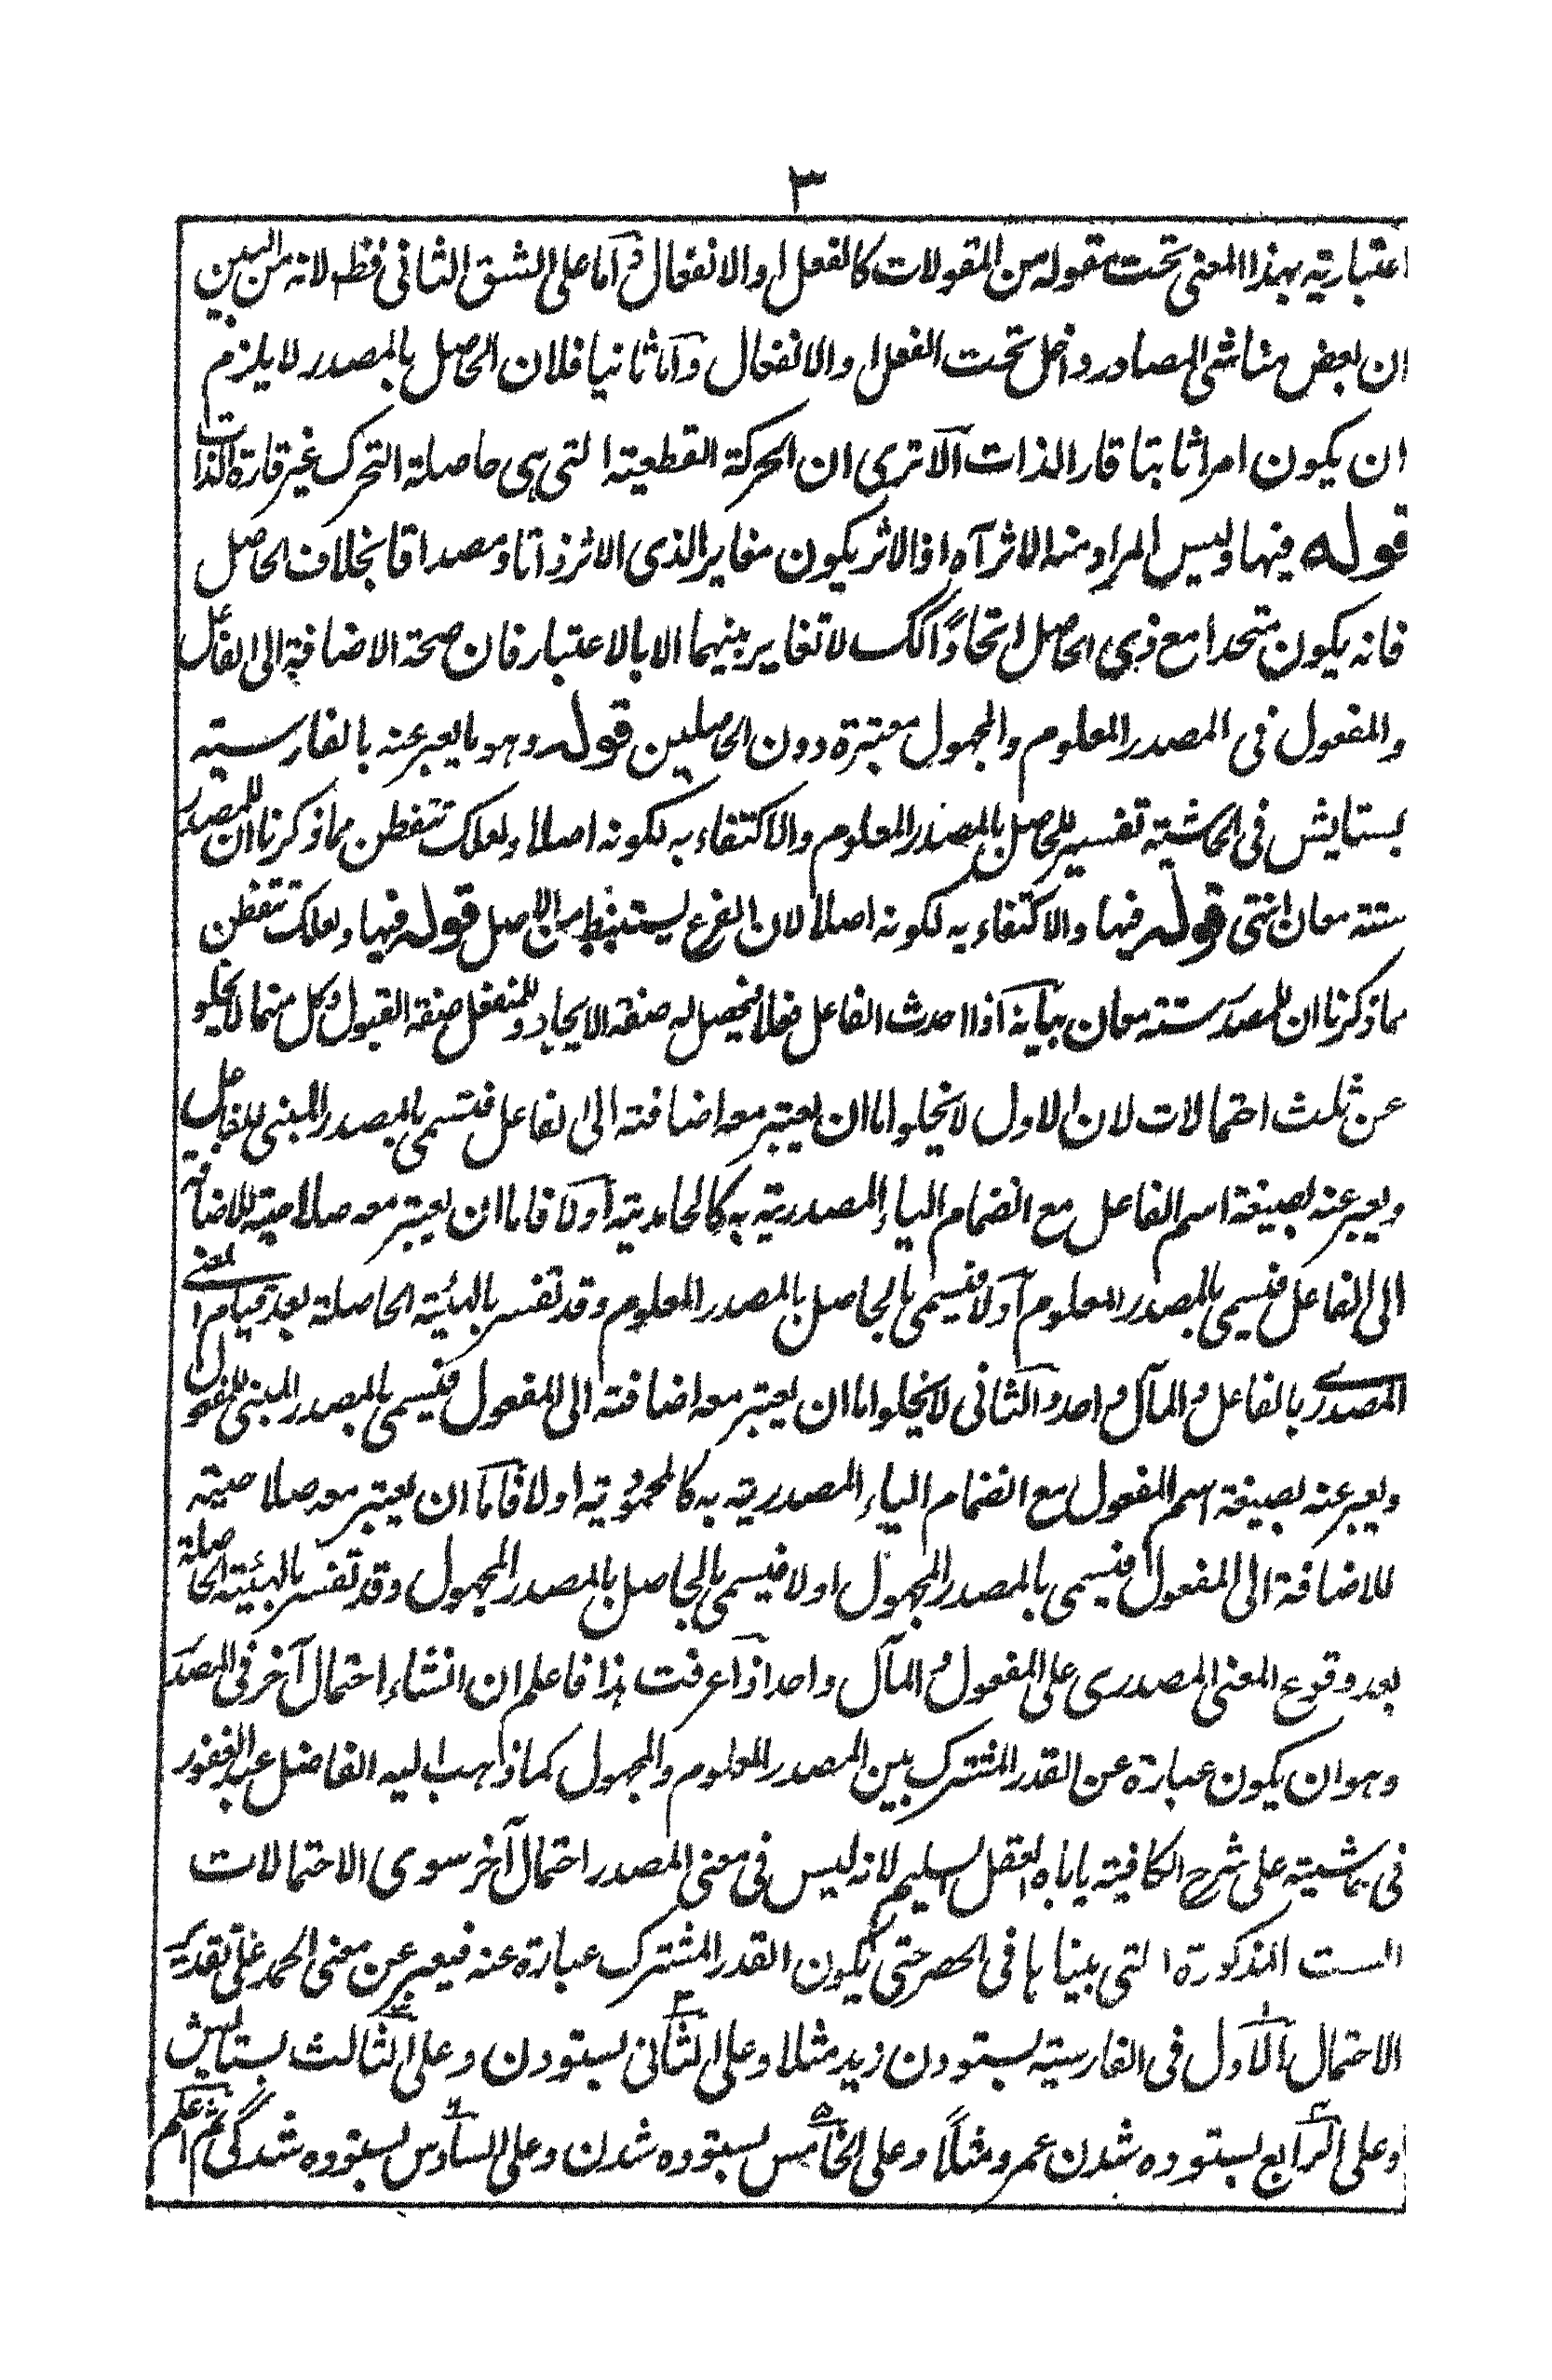 ٣
اعتبارية بهذا المعنى تحت مقولة من المقولات كالفعل والانفعال و اما على الشق الثانى فظ لانه من البين
ان بعض مناشى المصادر داخل تحت الفعل او الانفعال و اما ثانيا فلان الحاصل بالمصدر لا يلزم
ان يكون امرا ثابتا قار الذات الا ترى ان الحركة القطعية التى هى حاصلة التحرك غير قارة الذات
قوله فيها وليس المراد منه الاثر آه اذ الاثر يكون مغاير الذى الاثر ذاتا ومصداقا بخلاف الحاصل
فانه يكون متحدا مع ذى الحاصل اتحادًا لك لا تغاير بينهما الا بالاعتبار فان صحة الاضافة الى الفاعل
والمفعول فى المصدر المعلوم والمجهول معتبرة دون الحاصلين قوله وهو ما يعبر عنه بالفارسية
بستايش فى الحاشية تفسير للحاصل بالمصدر المعلوم والاكتفاء به لكونه اصلا ولعلك تتفطن مما ذكرنا ان للمصدر
ستة معان انتهى قوله فيها والاكتفاء به لكونه اصلا لان الفرع يستنبط من الاصل قوله فيها ولعلك تتفطن
مما ذكرنا ان للمصدر ستة معان بيانه اذا احدث الفاعل فعلا فيحصل له صفة الايجاد وللمنفعل صفة القبول وكل منهما لا يخلو
عن ثلث احتمالات لان الاول لا يخلو اما ان يعتبر معه اضافته الى الفاعل فتسمى بالمصدر المبنى للفاعل
ويعبر عنه بصيغة اسم الفاعل مع انضمام الياء المصدرية به كالحامدية اولا فاما ان يعتبر معه صلاحية للاضافة
الى الفاعل فيسمى بالمصدر المعلوم اولا فيسمى بالحاصل بالمصدر المعلوم وقد تفسر بالهيئة الحاصلة بعد قيام المعنى
المصدرى بالفاعل و المآل واحد و الثانى لا يخلو اما ان يعتبر معه اضافته الى المفعول فيسمى بالمصدر المبنى للمفعول
ويعبر عنه بصيغة اسم المفعول مع انضمام الياء المصدرية به كالمحمودية اولا فاما ان يعتبر معه صلاحية
للاضافة الى المفعول فيسمى بالمصدر المجهول اولا فيسمى بالحاصل بالمصدر المجهول وقد تفسر بالهيئة الحاصلة
بعد وقوع المعنى المصدرى على المفعول و المآل واحد اذا عرفت هذا فاعلم ان انشاء احتمال آخر فى المصدر
وهو ان يكون عبارة عن القدر المشترك بين المصدر المعلوم والمجهول كما ذهب اليه الفاضل عبد الغفور
فى حاشيته على شرح الكافية ياباه العقل السليم لانه ليس فى معنى المصدر احتمال آخر سوى الاحتمالات
الست المذكورة التى بيناها فى الحصر حتى يكون القدر المشترك عبارة عنه فيعبر عن معنى الحمد على تقدير
الاحتمال الاول فى الفارسية بستودن زيد مثلا وعلى الثانى بستودن وعلى الثالث بستايش
وعلى الرابع بستوده شدن عمرو مثلاً وعلى الخامس بستوده شدن وعلى السادس بستوده شدگى ثم اعلم